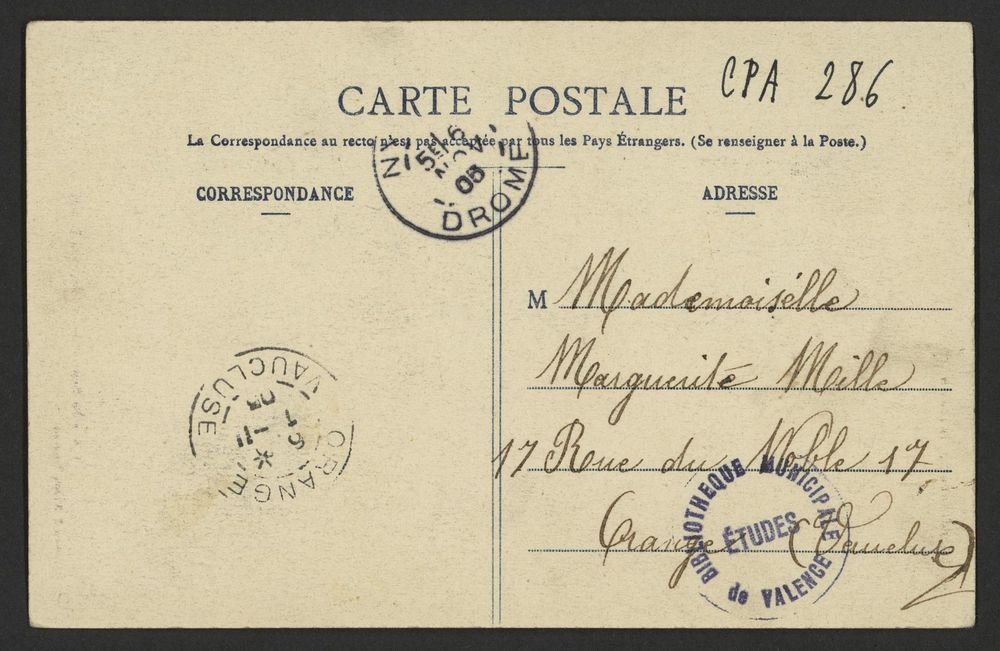 CPA 286
CARTE POSTALE
La Correspondance au recto n'est pas acceptée par tous les Pays Étrangers. (Se renseigner à la Poste.)
CORRESPONDANCE
ADRESSE
DROME
M Mademoisélle
Marguerite Mille
17 Rue du Noble 17
Orange (Vaucluse)
ORANGE
VAUCLUSE
BIBLIOTHEQUE MUNICIPALE
ÉTUDES
de VALENCE